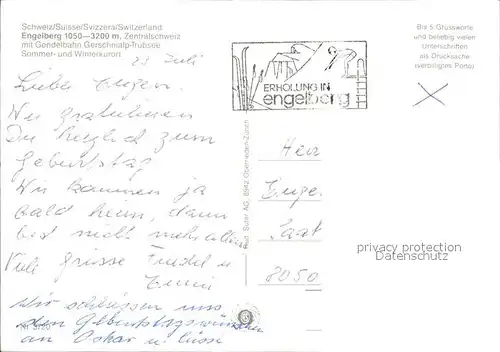 Schweiz/Suisse/Svizzera/Switzerland
Engelberg 1050—3200 m, Zentralschweiz
mit Gondelbahn Gerschnialp-Trübsee
Sommer- und Winterkurort
23 Juli
Lieber Eugen.
Wir gratulieren
Dir herzlich zum
Geburtstag
Wir kommen ja
bald heim, dann
bist nicht mehr allein
Viele Grüsse Friedel u
Wir schliessen uns
den Geburtstagswünschen
an Oskar u. Lisse
Nr. 3720
ERHOLUNG IN
engelberg
Bis 5 Grussworte
und beliebig vielen
Unterschriften
als Drucksache
(verbilligtes Porto)
Rud. Suter AG, 8942 Oberrieden-Zürich
Herr
Euge
Saat
8050
privacy protection
Datenschutz